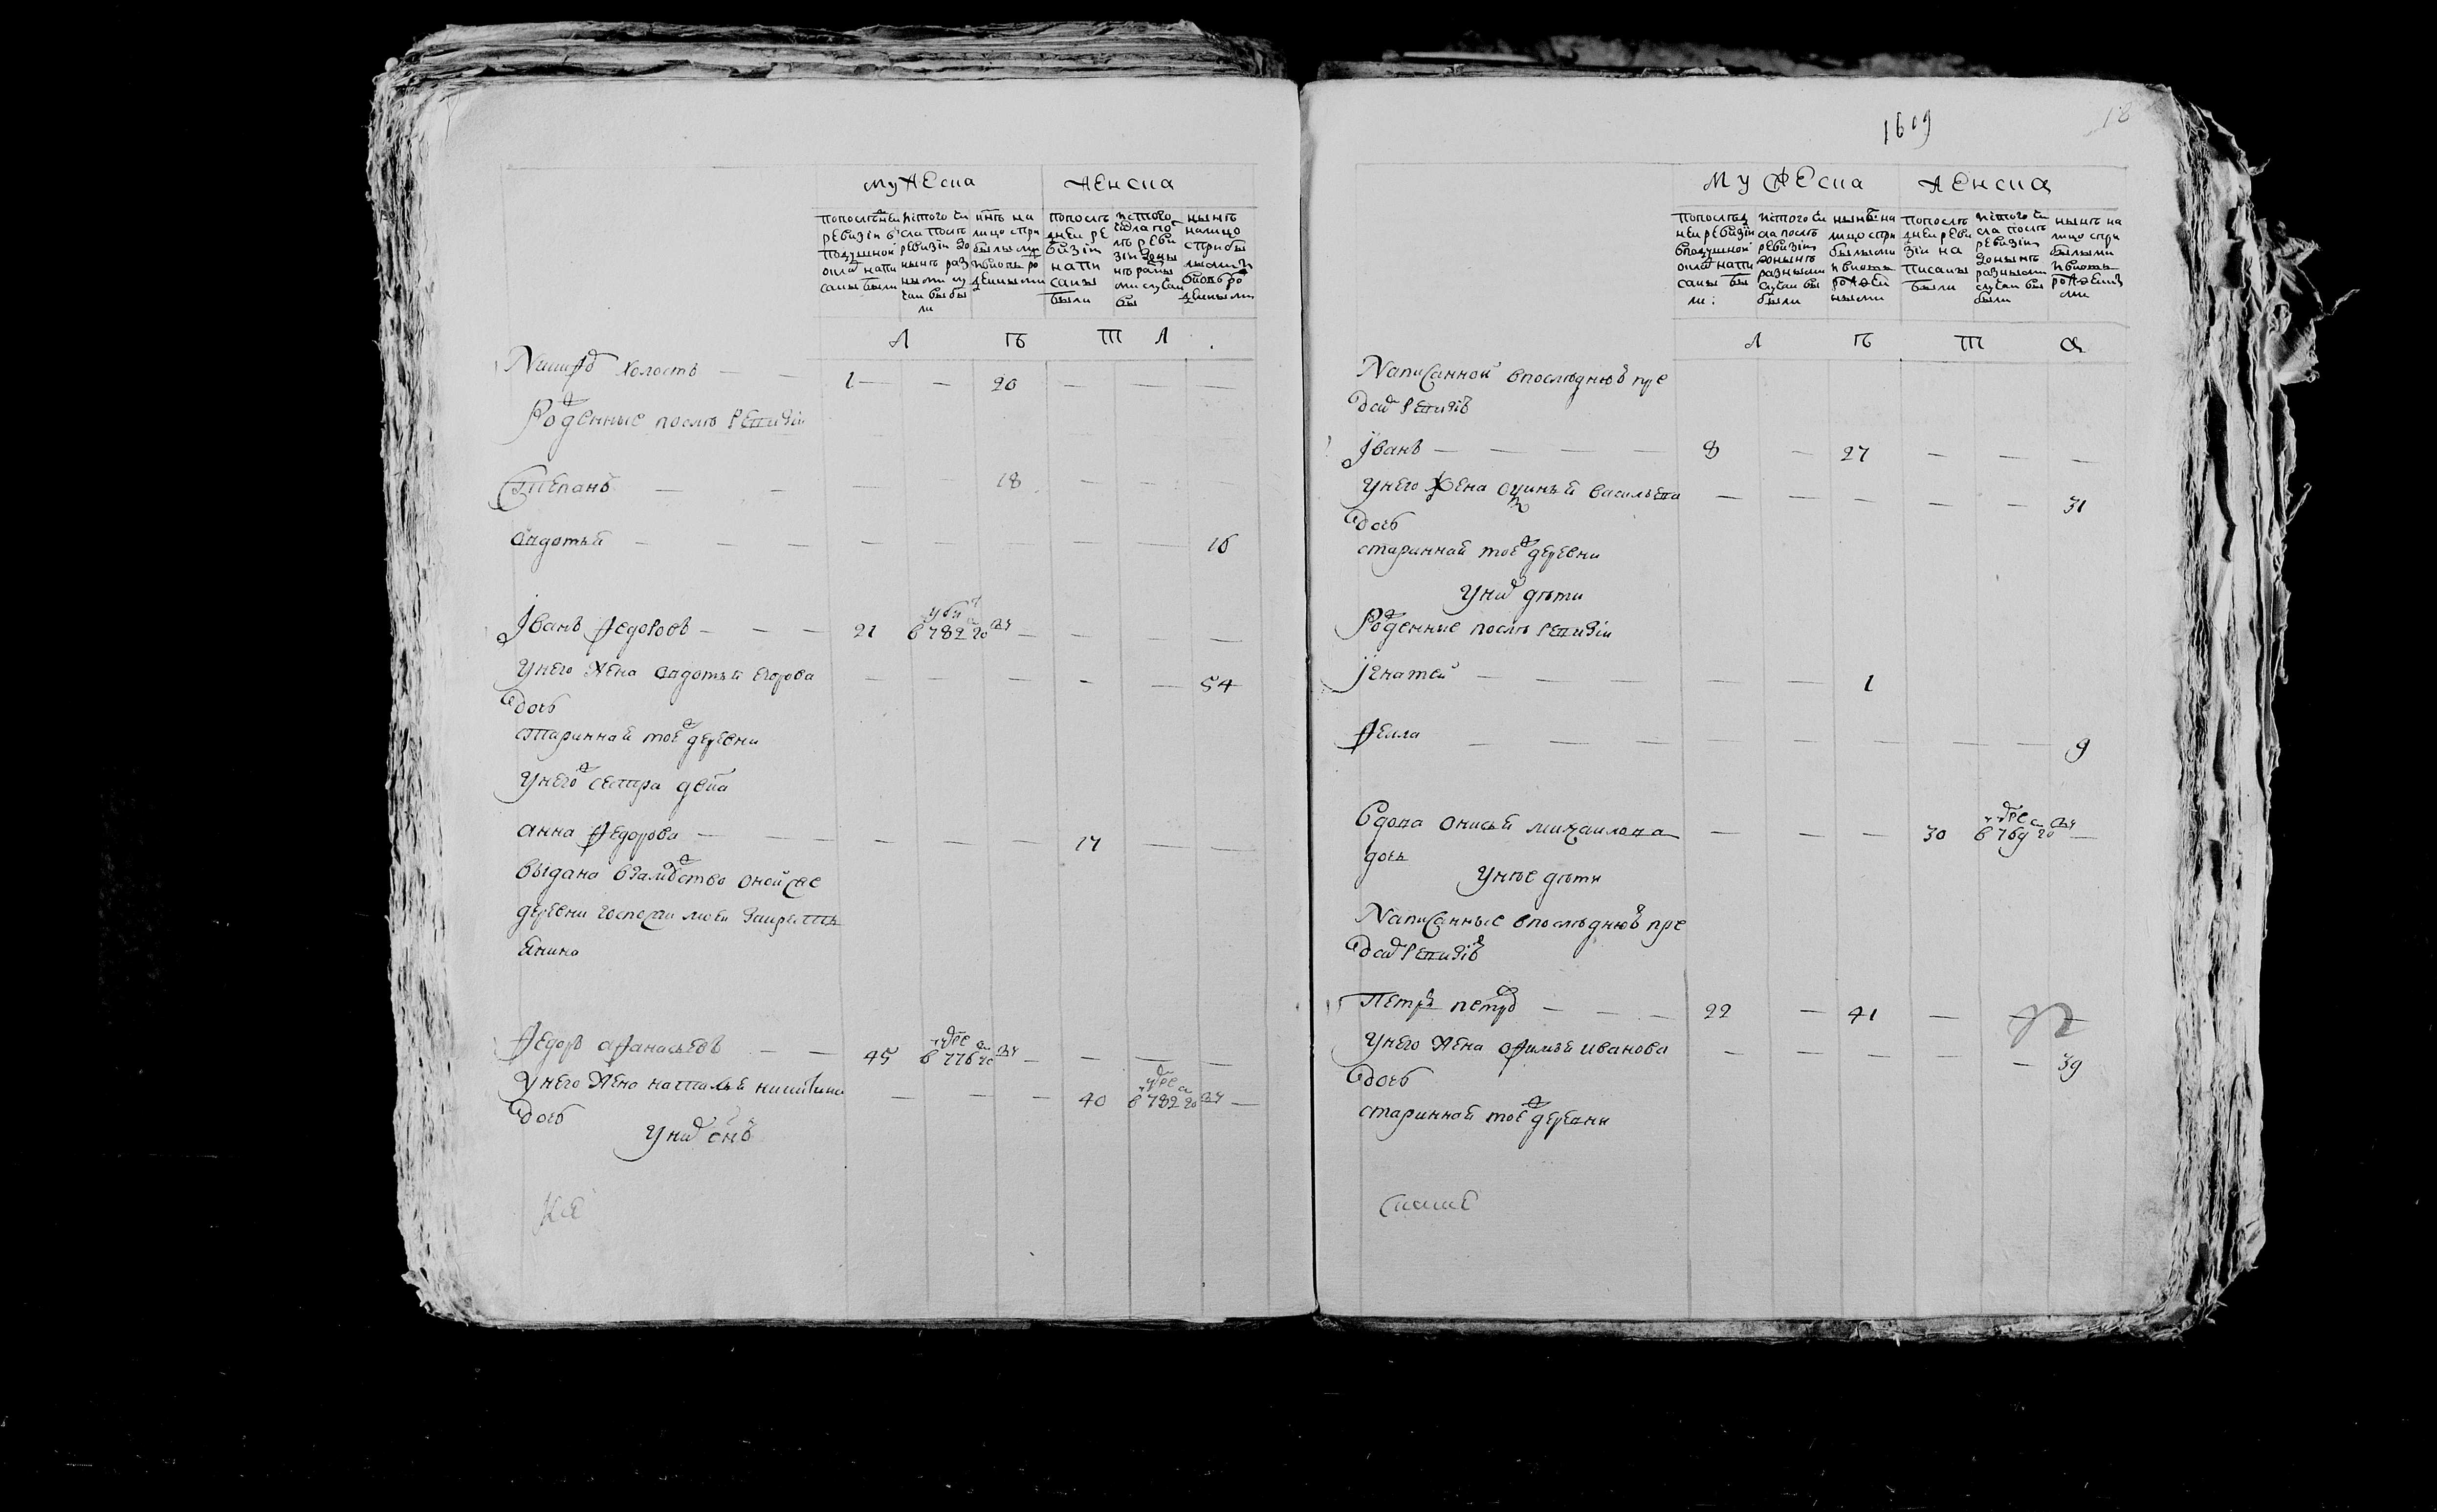 мужеска
женска
попослѣдней ревизіи вподушной окладъ написаны были
истого числа послѣ ревизіи донынѣ разными случаи выбыли
нынѣ на лицо сприбылыми и вновь рожденными
попослѣдней ревизіи написаны были
исTого числа послѣ ревизіи донынѣ разными случаи выбы
нынѣ налицо сприбылыми и вновь рожденными
Л ѣ т Л
холостъ 1 20
Рожденные послѣ ревизіи
Степанъ 18
авдотья 16
Іванъ Федоровъ 21 в 782 году
Унего жена авдотья Егорова 54
дочь
стариннай тоеж деревни
Унегож сестра девка
анна Федорова 17
выдана взамужство оной же
деревни госпожи
Федоръ афанасьевъ 45 умре в 776 году
Унего жена наталья никитина 40 умре в 782 году
дочь
Уних снъ
1609
18
мужеска
женска
попослѣдней ревизіи вподушной окладъ написаны были:
исTого числа послѣ ревизіи донынѣ разными случаи выбыли
нынѣ на лицо сприбылыми и вновь рожденными
попослѣдней ревизіи написаны были
исTого числа послѣ ревизіи донынѣ разными случаи выбыли
нынѣ на лицо сприбылыми и вновь рожденными
Л ѣ т а
Написанной впослѣднюю пре
дъ сей ревизіею
Іванъ 8 27
Унего жена Васильева 31
дочь
стариннай тоеж деревни
Уних дѣти
Рожденные послѣ ревизіи
Ігнатей 1
Фекла 9
Вдова онисья михаилова 30 умре в 769 году
дочь
Унее дѣти
Написанные впослѣднюю пре
дъ сей ревизіею
Петръ петровъ 22 41
Унего жена афимья иванова 39
дочь
стариннай тоеж деревни